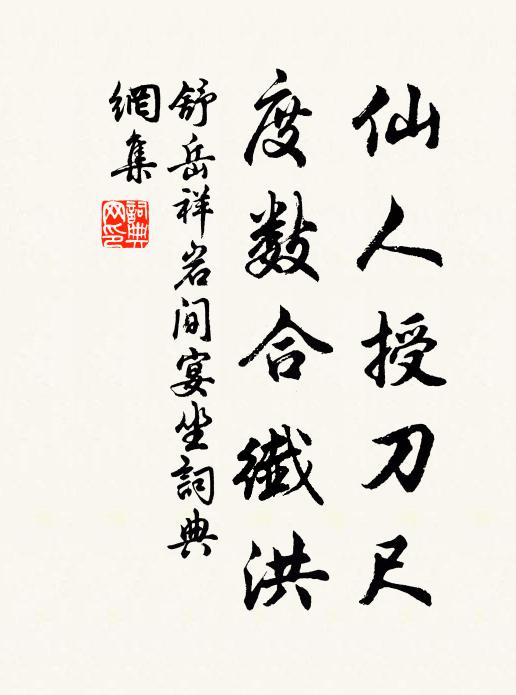 仙人授刀尺
度数合纖洪
舒岳祥岩间宴坐詞典
網集
詞典網印